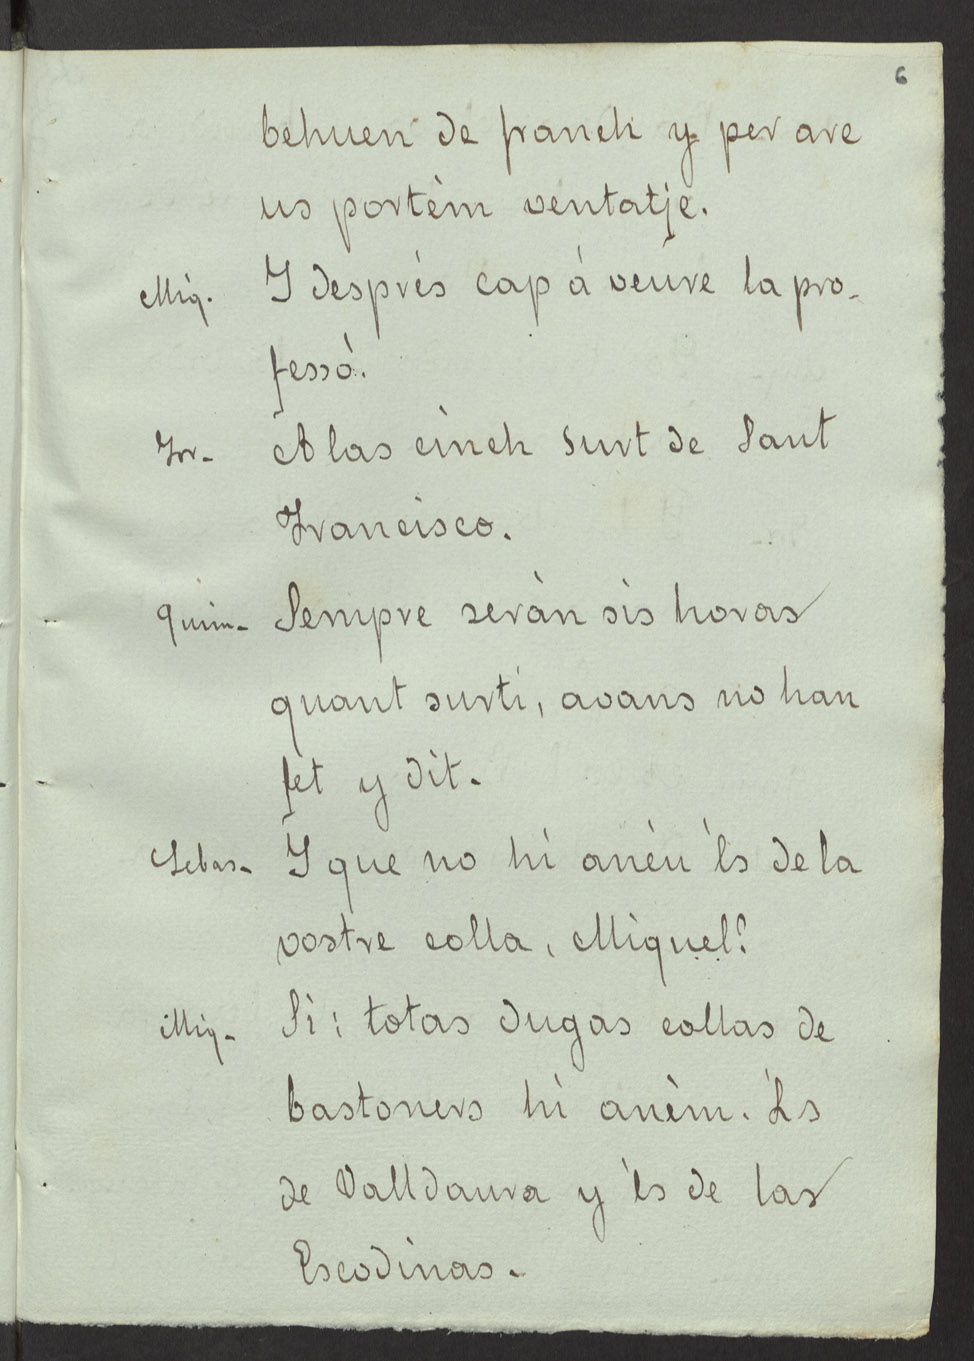 6
behuen de franch y per are
us portèm ventatje.
Miq. Y desprès cap á veure la pro-
fessò.
For- A las cinch surt de Sant
Francisco.
Quim- Sempre seràn sis horas
quant surti, avans no han
fet y dit-
Sebas- Y que no hi anèu 'ls de la
vostre colla, Miquel?
Miq- Si; totas dugas collas de
bastoners hi anèm. 'Ls
de Valldaura y 'ls de las
Escodinas-